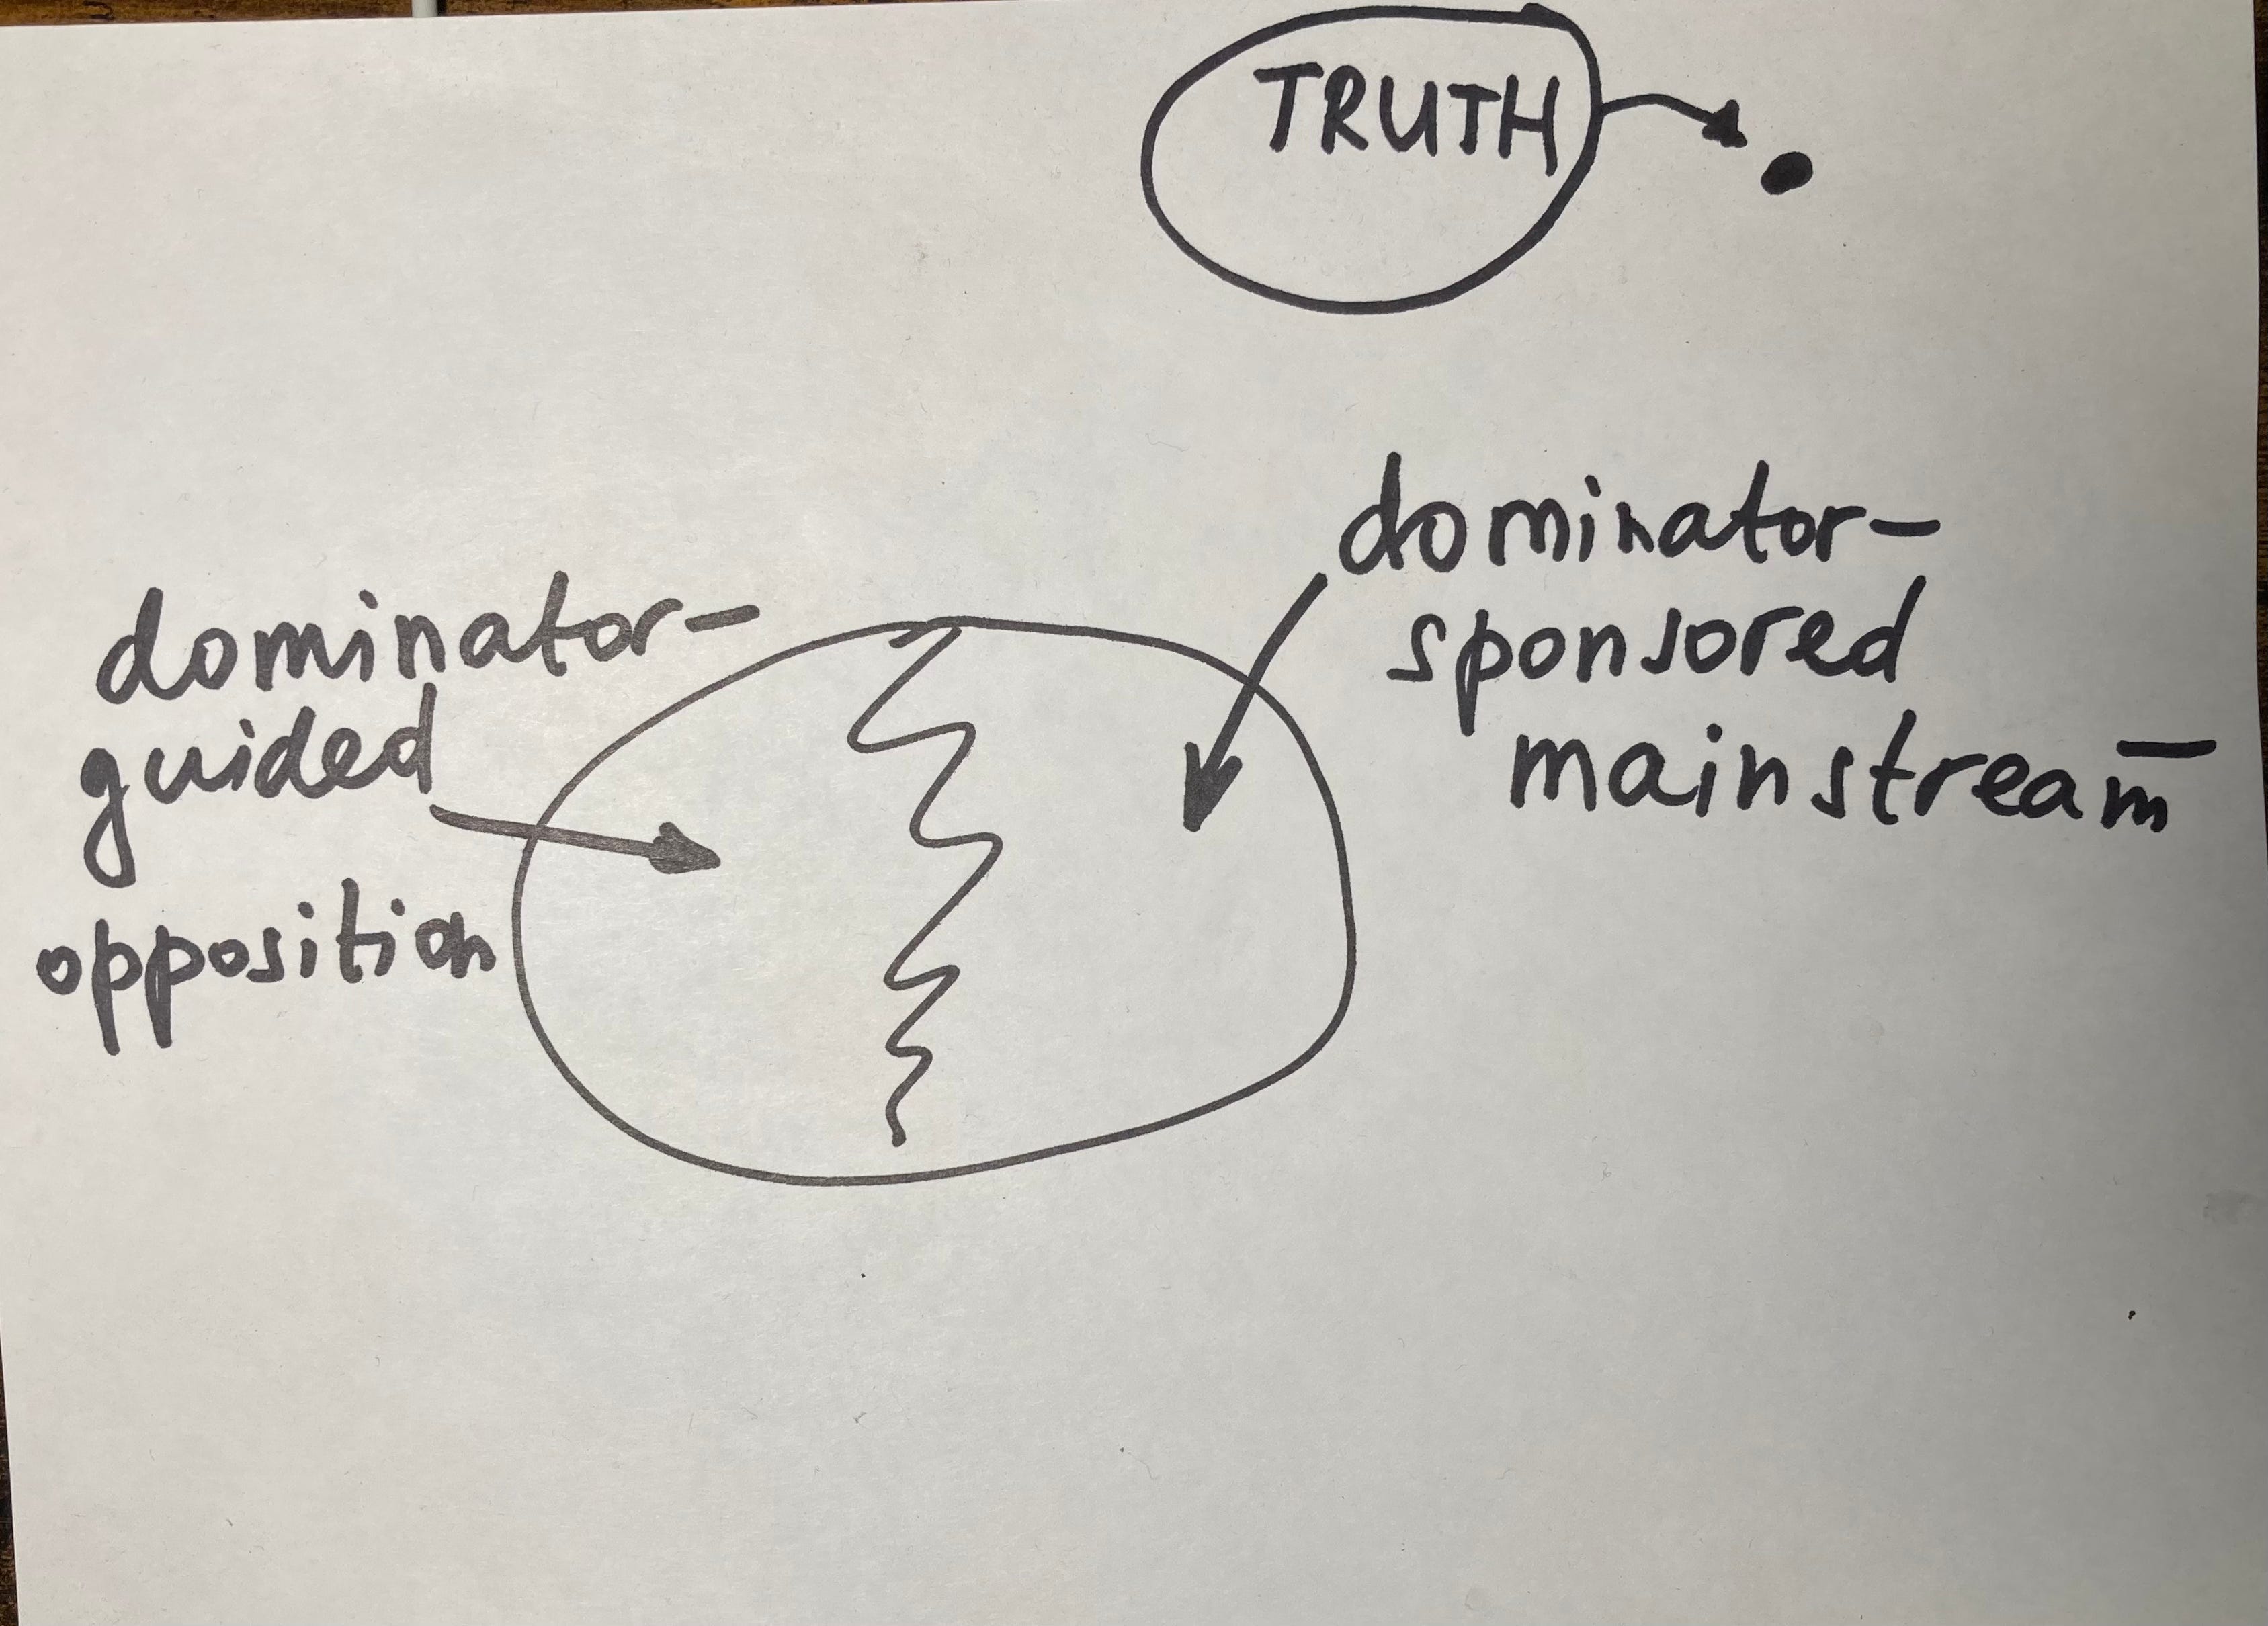 TRUTH
dominator-
guided
opposition
dominator-
sponsored
mainstream